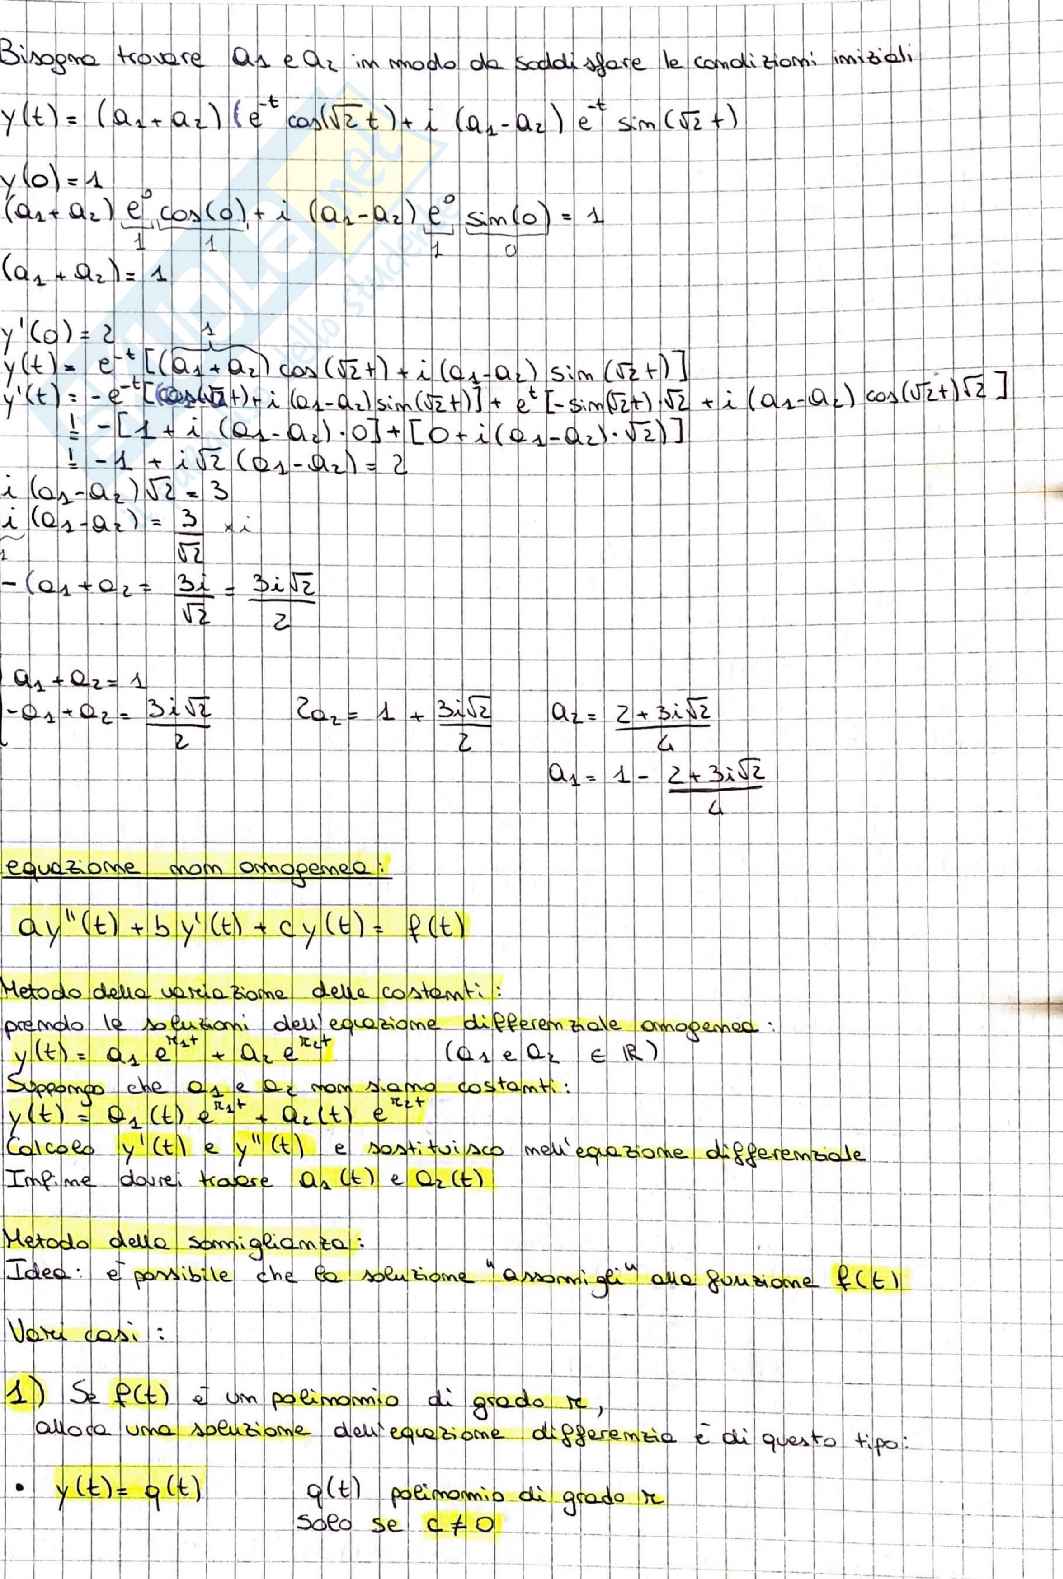 Bisogna trovare a₁ e a₂ in modo da soddisfare le condizioni iniziali
y(t) = (a₁+a₂) (e^-t cos(√2 t) + i (a₁-a₂) e^-t sin(√2 t)
y(0) = 1
(a₁+a₂) e⁰ cos(0) + i (a₁-a₂) e⁰ sin(0) = 1
1 1 1 0
(a₁+a₂) = 1
y'(0) = 2 1
y(t) = e^-t [(a₁+a₂) cos(√2 t) + i (a₁-a₂) sin(√2 t)]
y'(t) = -e^-t [cos(√2 t) + i (a₁-a₂) sin(√2 t)] + e^t [-sin(√2 t)·√2 + i (a₁-a₂) cos(√2 t)√2]
! = -[1 + i (a₁-a₂)·0] + [0 + i (a₁-a₂)·√2)]
! = -1 + i√2 (a₁-a₂) = 2
i (a₁-a₂)√2 = 3
i (a₁-a₂) = 3/√2 × i
-(a₁+a₂ = 3i/√2 = 3i√2/2
a₁+a₂ = 1
-a₁+a₂ = 3i√2/2 2a₂ = 1 + 3i√2/2 a₂ = 2+3i√2/4
a₁ = 1 - 2+3i√2/4
equazione non omogenea:
ay"(t) + by'(t) + cy(t) = f(t)
Metodo della variazione delle costanti:
prendo le soluzioni dell'equazione differenziale omogenea:
y(t) = a₁ e^r₁t + a₂ e^r₂t (a₁ e a₂ ∈ ℝ)
Suppongo che a₁ e a₂ non siano costanti:
y(t) = a₁(t) e^r₁t + a₂(t) e^r₂t
Calcolo y'(t) e y"(t) e sostituisco nell'equazione differenziale
Infine dovrei trovare a₁(t) e a₂(t)
Metodo della somiglianza:
Idea: è possibile che la soluzione "assomigli" alla funzione f(t)
Vari casi:
1) Se f(t) è un polinomio di grado r,
allora una soluzione dell'equazione differenzia è di questo tipo:
• y(t) = q(t) q(t) polinomio di grado r
solo se c≠0